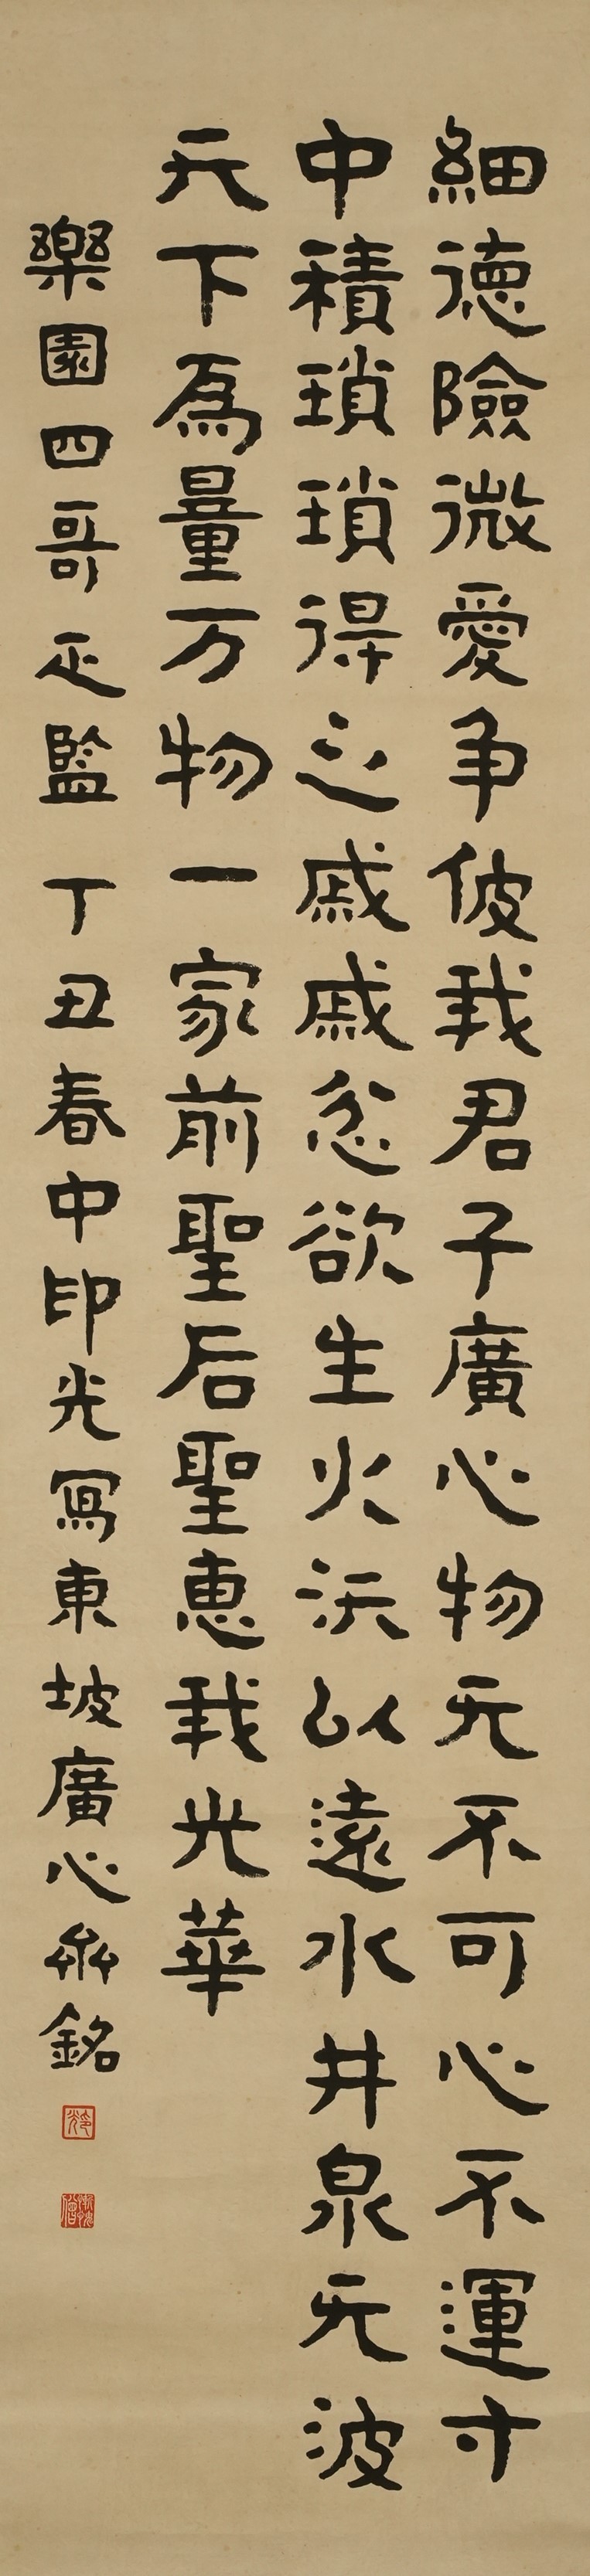 細德險微愛争彼我君子廣心物无不可心不運寸
中積瑣瑣得之戚戚忿欲生火沃以遠水井泉无波
天下為量万物一家前聖后聖惠我光華
樂園四哥正監 丁丑春中印光寫東坡廣心齋銘
印光
慚愧僧